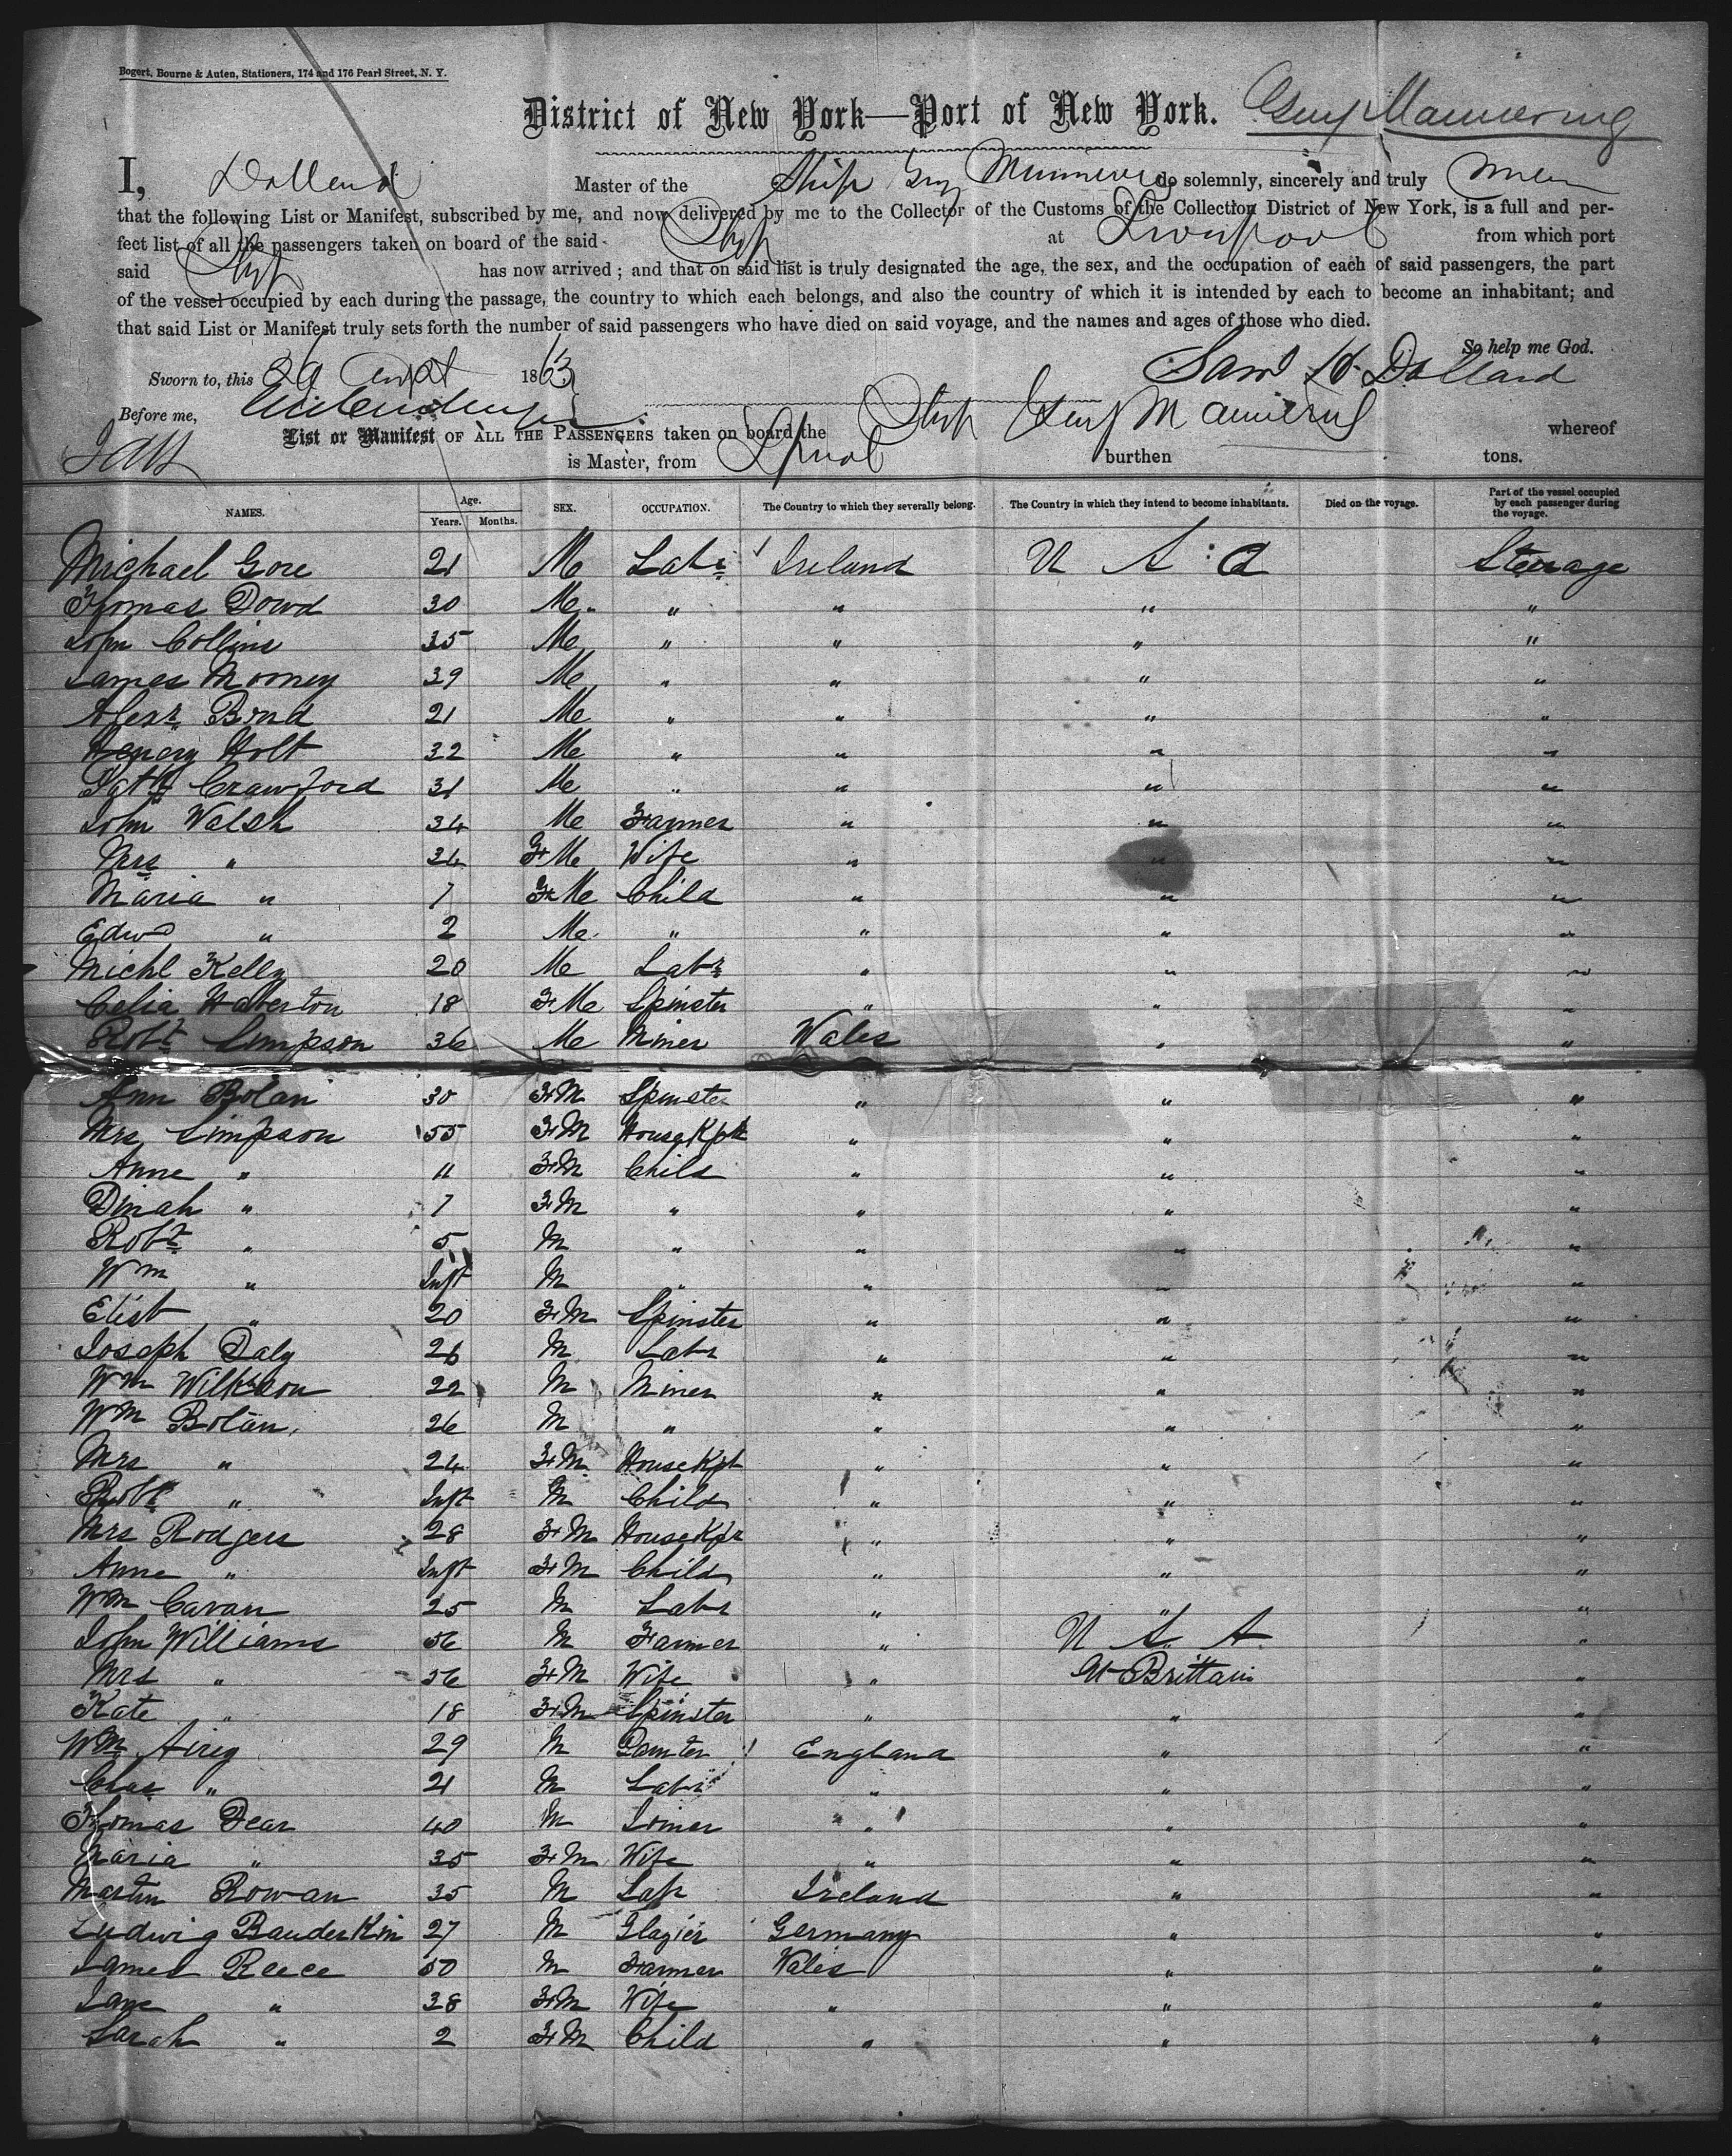 Bogert, Bourne & Auten, Stationers, 174 and 176 Pearl Street, N. Y.
District of New York—Port of New York. Guy Mannering
I, Dollard Master of the Ship Guy Mannering do solemnly, sincerely and truly swear
that the following List or Manifest, subscribed by me, and now delivered by me to the Collector of the Customs of the Collection District of New York, is a full and per-
fect list of all the passengers taken on board of the said Ship at Liverpool from which port
said Ship has now arrived; and that on said list is truly designated the age, the sex, and the occupation of each of said passengers, the part
of the vessel occupied by each during the passage, the country to which each belongs, and also the country of which it is intended by each to become an inhabitant; and
that said List or Manifest truly sets forth the number of said passengers who have died on said voyage, and the names and ages of those who died.
So help me God.
Sworn to, this 29 1863 Saml H Dollard
Before me,
List or Manifest OF ALL THE PASSENGERS taken on board the Ship Guy Mannering whereof
is Master, from Lpool burthen tons.
NAMES. Age. Years. Months. SEX. OCCUPATION. The Country to which they severally belong. The Country in which they intend to become inhabitants. Died on the voyage. Part of the vessel occupied by each passenger during the voyage.
Michael Gore 21 Me Labr Ireland U S : A Steerage
Thomas Dowd 30 Me " " " "
John Collins 35 Me " " " "
James Mooney 39 Me " " " "
Alexr Bond 21 Me " " " "
Henery Holt 32 Me " " " "
Patk Crawford 31 Me " " " "
John Walsh 34 Me Farmer " " "
Mrs " 34 F Me Wife " " "
Maria " 7 F Me Child " " "
Edwd " 2 Me " " " "
Michl Kelly 20 Me Labr " " "
Celia Haverton 18 F Me Spinster " " "
Robt Simpson 36 Me Miner Wales " "
Ann Bolan 30 F M Spinster " " "
Mrs Simpson 55 F M HouseKpr " " "
Anne " 11 F M Child " " "
Dinah " 7 F M " " " "
Robt " 5 M " " " "
Wm " Inft M " " " "
Elist " 20 F M Spinster " " "
Joseph Daly 26 M Labr " " "
Wm Wilkson 22 M Miner " " "
Wm Bolan 26 M " " " "
Mrs " 24 F M HouseKpr " " "
Robt " Inft M Child " " "
Mrs Rodgers 28 F M HouseKpr " " "
Anne " Inft F M Child " " "
Wm Cavan 25 M Labr " " "
John Williams 56 M Farmer " U S A "
Mrs " 56 F M Wife " Gt Brittain "
Kate " 18 F M Spinster " " "
Wm Airey 29 M Painter England " "
Chas " 21 M Labr " " "
Thomas Dear 40 M Joiner " " "
Maria " 35 F M Wife " " "
Martin Rowan 35 M Labr Ireland " "
Ludwig BauderKin 27 M Glazier Germany " "
James Reece 50 M Farmer Wales " "
Jane " 38 F M Wife " " "
Sarah " 2 F M Child " " "